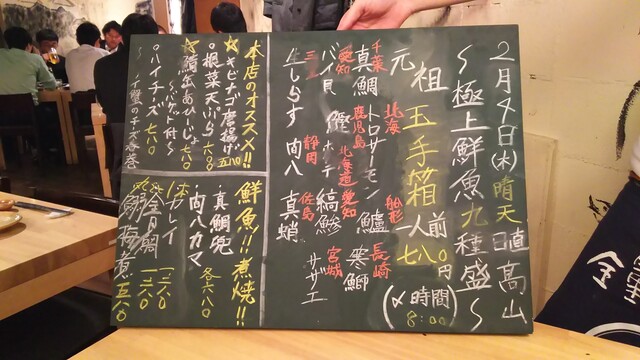 2月4日(木)晴天 日直 高山
～極上鮮魚九種盛～
元祖玉手箱 一人前七八〇円
(〆時間 8:00)
千葉 北海 船形 長崎
真鯛 トロサーモン 鱸 寒鰤
愛知 鹿児島 北海道 愛知 宮城
バイ貝 鰹 ホタテ 縞鯵 サザエ
三重 静岡 佐島
生しらす 向八 真蛸
本店のオススメ!!
☆キビナゴ唐揚げ 五八〇
○根菜天ぷら 六〇〇
☆鯖缶あひーじょ
～バゲット付～ 七八〇
○ハイチーズ 七八〇
～イ蟹のチーズ春巻
鮮魚!!煮焼!!
・真鯛兜
・向八カマ 各六八〇
カレイ 一三八〇
金目鯛 一六八〇
鰯梅煮 五八〇